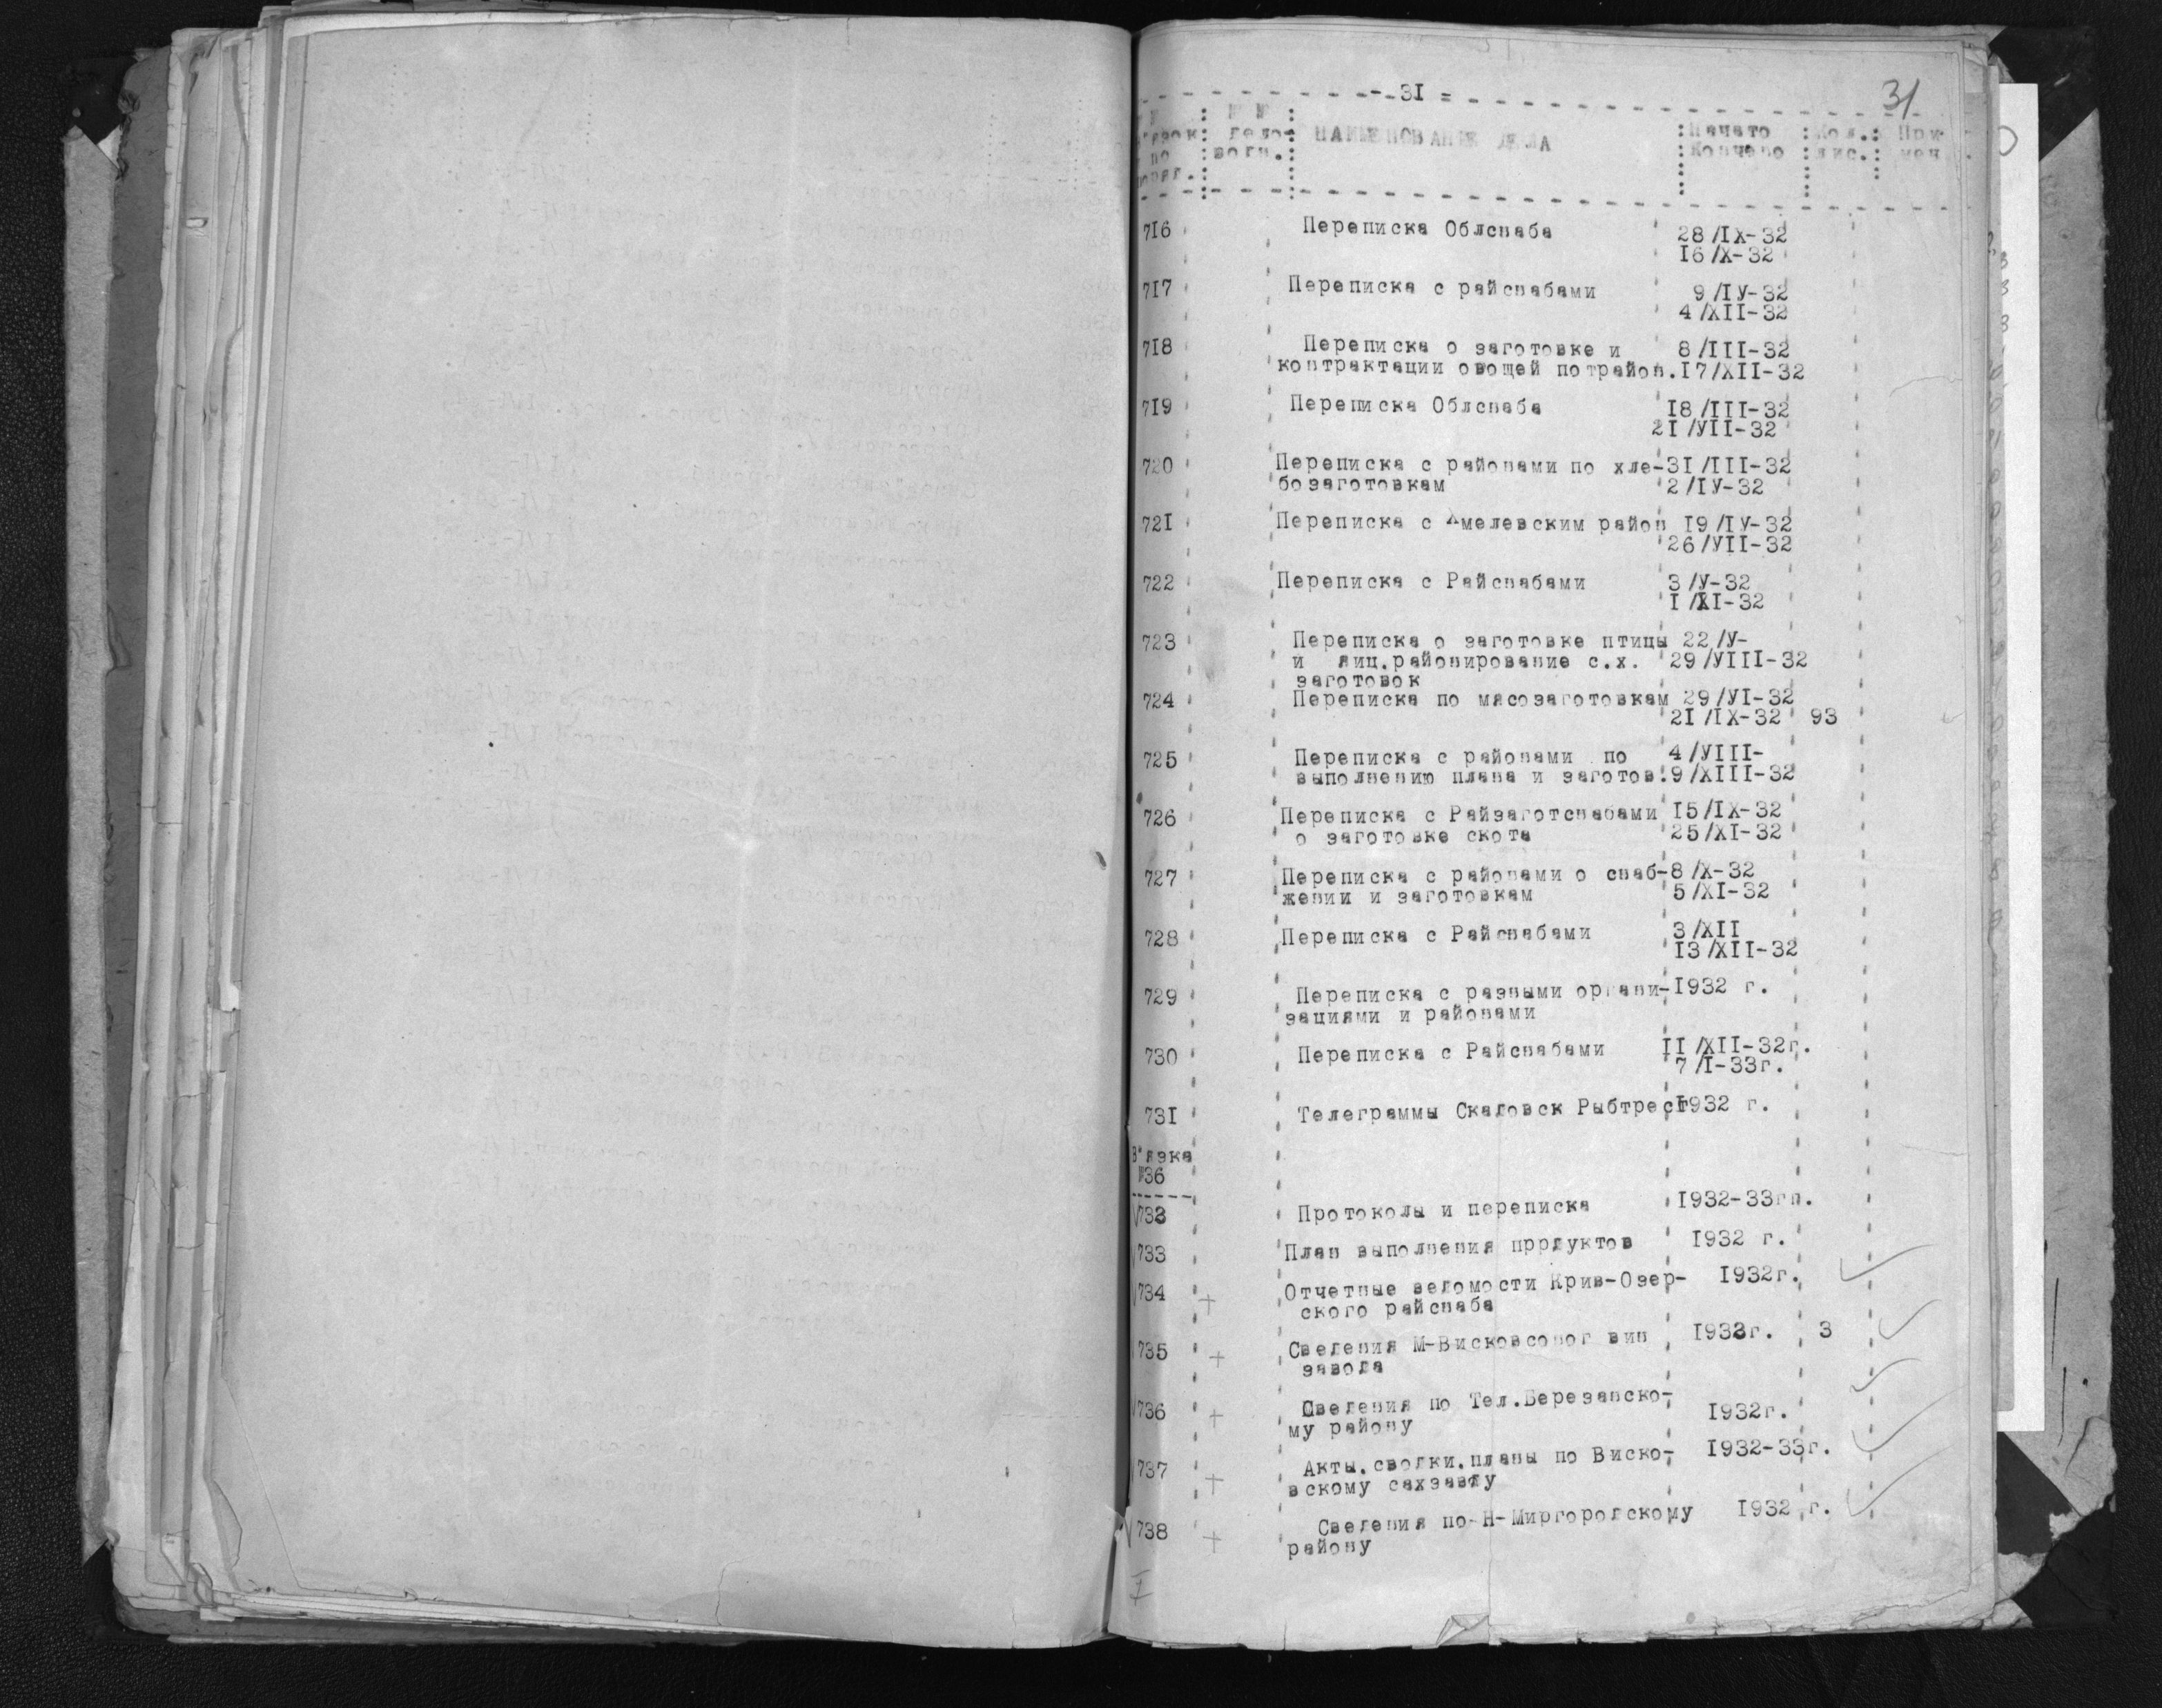 -31-
31
№ № : НАИМЕНОВАНИЕ ДЕЛА : Начато : Кол. : При
по : дело- : Кончено : лис. : меч.
вогн.
716 Переписка Облснаба 28/IX-32
16/X-32
717 Переписка с райснабами 9/IУ-32
4/XII-32
718 Переписка о заготовке и 8/III-32
контрактации овощей потрайон. 17/XII-32
719 Переписка Облснаба 18/III-32
21/УII-32
720 Переписка с районами по хле- 31/III-32
бозаготовкам 2/IУ-32
721 Переписка с Хмелевским район 19/IУ-32
26/УII-32
722 Переписка с Райснабами 3/У-32
1/XI-32
723 Переписка о заготовке птицы 22/У-
и яиц.районирование с.х. 29/УIII-32
заготовок
724 Переписка по мясозаготовкам 29/УI-32
21/IX-32 93
725 Переписка с районами по 4/УIII-
выполнению плана и заготов. 9/XIII-32
726 Переписка с Райзаготснабами 15/IX-32
о заготовке скота 25/XI-32
727 Переписка с районами о снаб- 8/X-32
жении и заготовкам 5/XI-32
728 Переписка с Райснабами 3/XII
13/XII-32
729 Переписка с разными органи- 1932 г.
зациями и районами
730 Переписка с Райснабами 11/XII-32г.
7/I-33г.
731 Телеграммы Скадовск Рыбтрест 1932 г.
В"язка
№36
732 Протоколы и переписка 1932-33гг.
733 План выполнения пррдуктов 1932 г.
734 + Отчетные ведомости Крив-Озер- 1932г.
ского райснаба
735 + Сведения М-Висковсоног вин 1932г. 3
завода
736 + Сведения по Тел.Березанско-
му району 1932г.
737 + Акты.сводки.планы по Виско- 1932-33г.
вскому сахзавду
738 + Сведения по-Н-Миргородскому 1932 г.
району